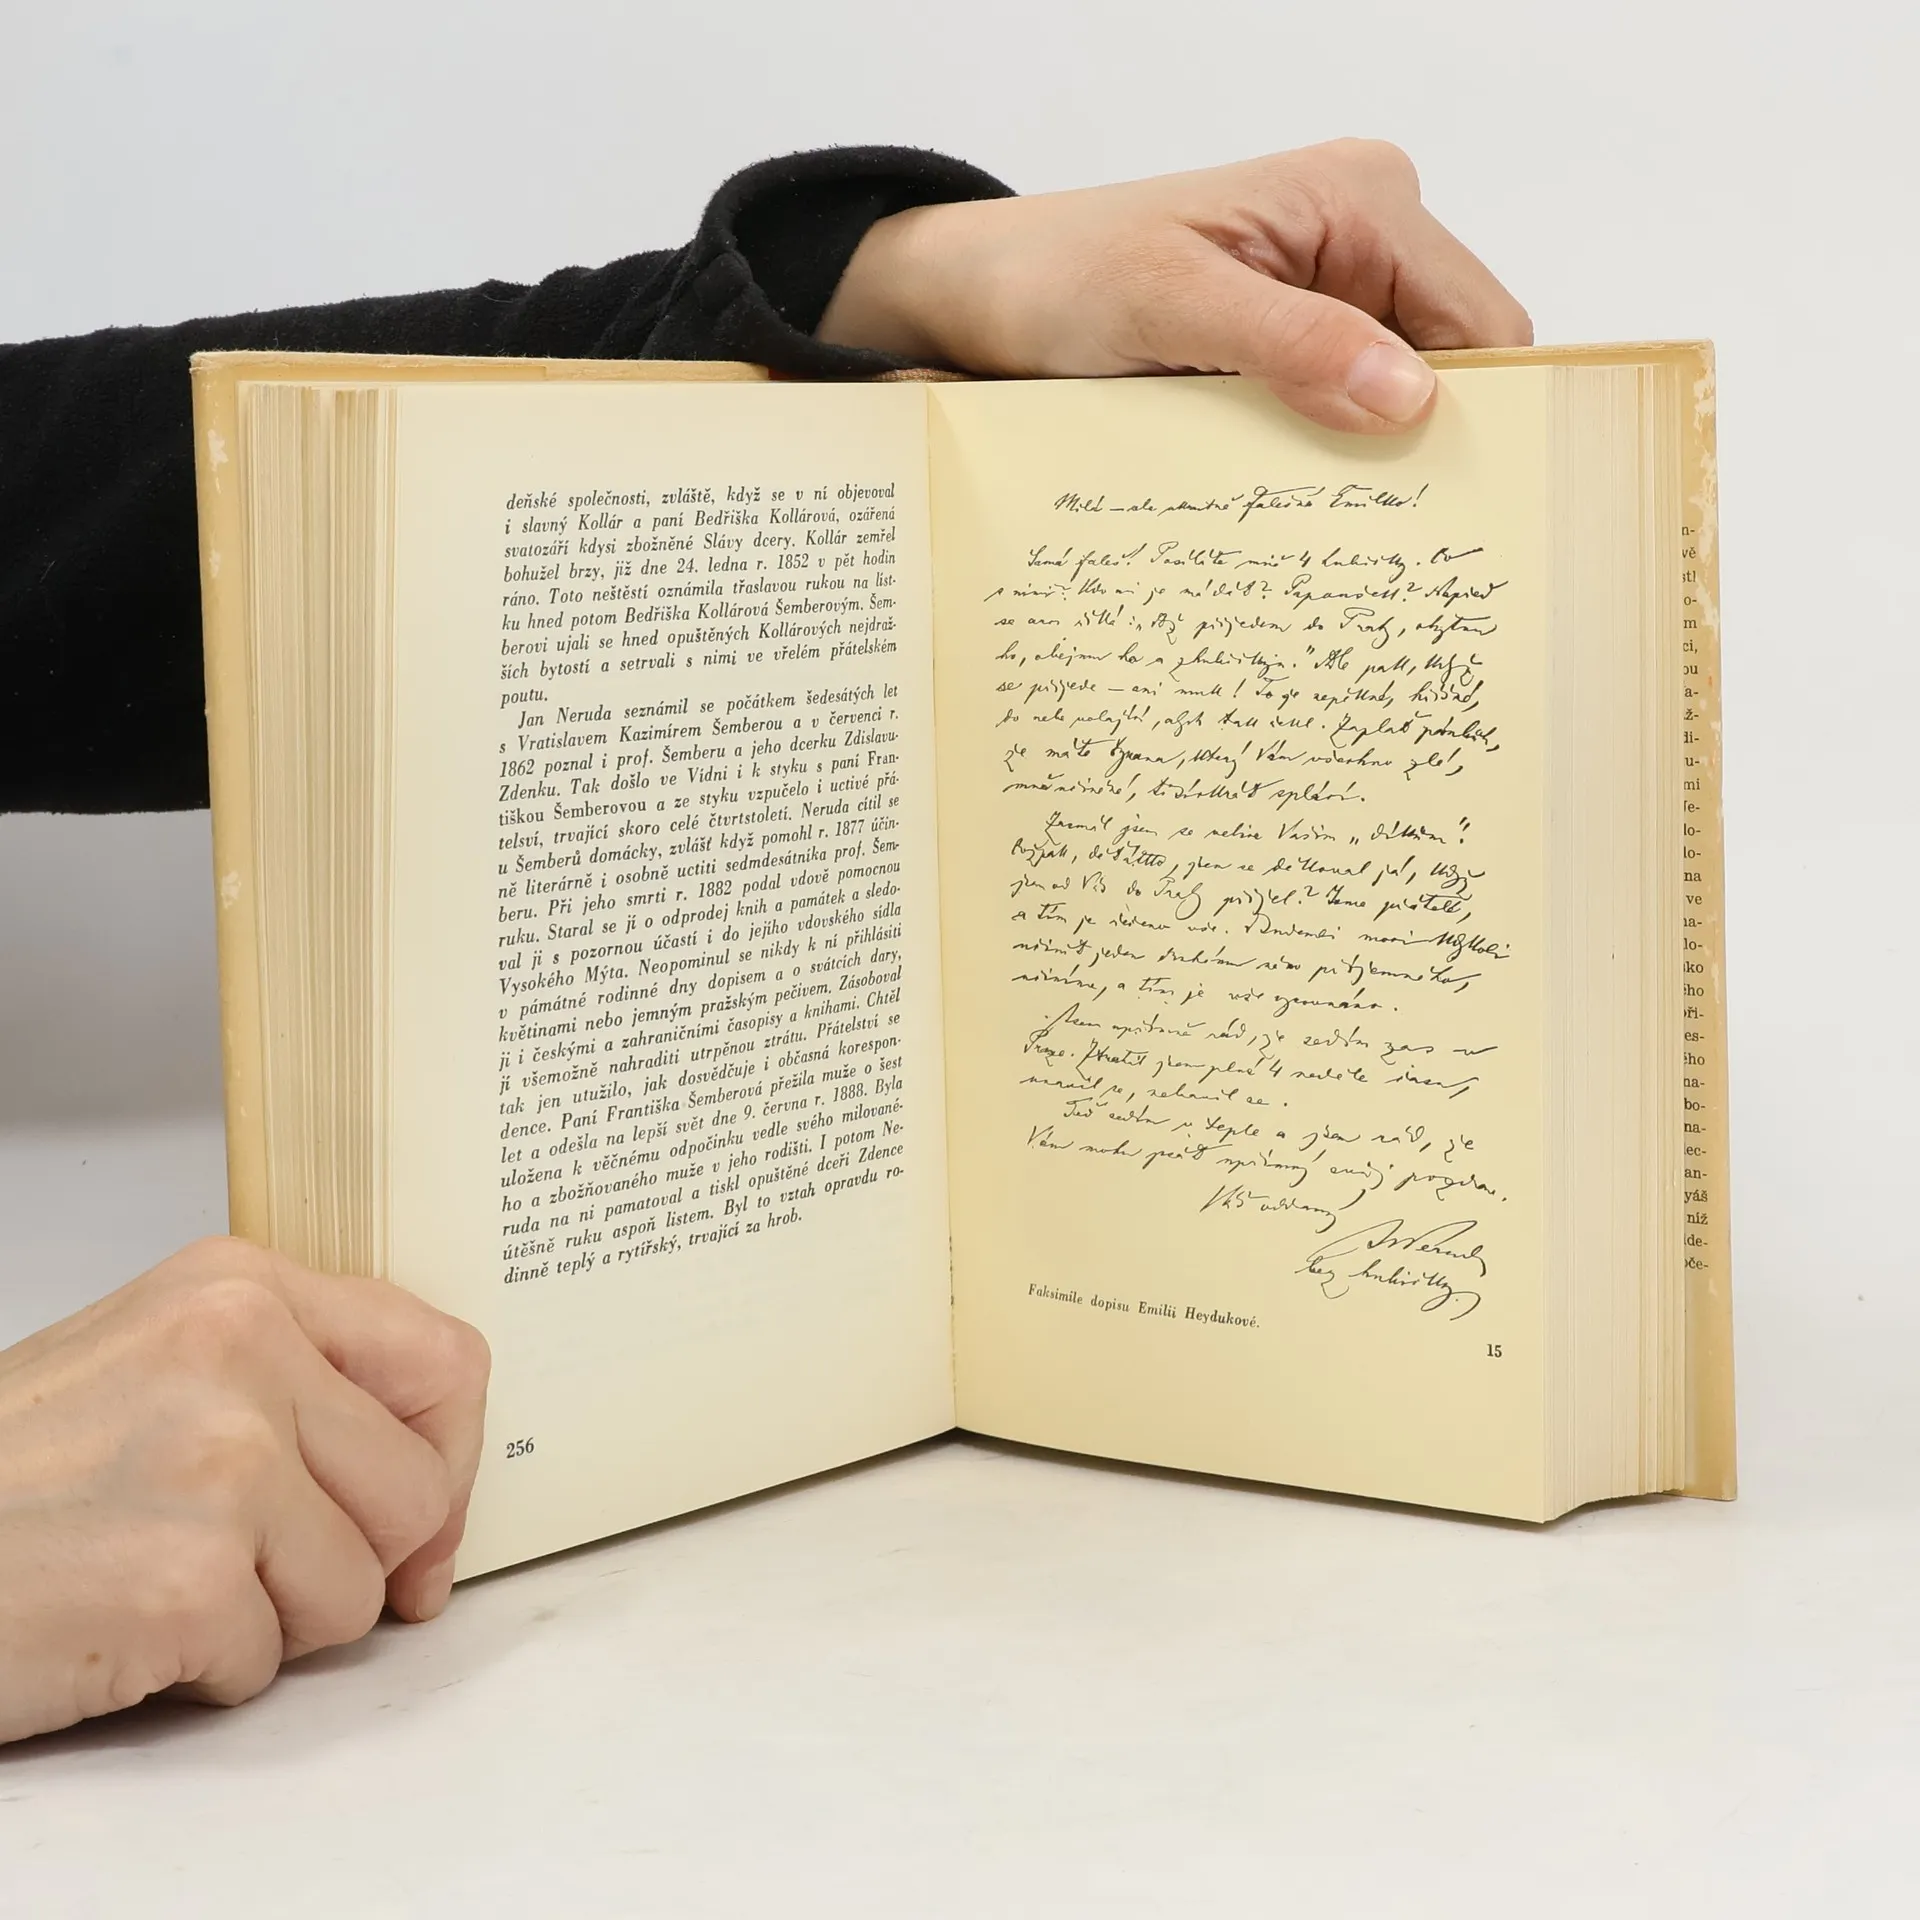 deňské společnosti, zvláště, když se v ní objevoval
i slavný Kollár a paní Bedřiška Kollárová, ozářená
svatozáří kdysi zbožněné Slávy dcery. Kollár zemřel
bohužel brzy, již dne 24. ledna r. 1852 v pět hodin
ráno. Toto neštěstí oznámila třaslavou rukou na líst-
ku hned potom Bedřiška Kollárová Šemberovým. Šem-
berovi ujali se hned opuštěných Kollárových nejdraž-
ších bytostí a setrvali s nimi ve vřelém přátelském
poutu.
Jan Neruda seznámil se počátkem šedesátých let
s Vratislavem Kazimírem Šemberou a v červenci r.
1862 poznal i prof. Šemberu a jeho dcerku Zdislavu-
Zdenku. Tak došlo ve Vídni i k styku s paní Fran-
tiškou Šemberovou a ze styku vzpučelo i uctivé přá-
telsví, trvající skoro celé čtvrtstoletí. Neruda cítil se
u Šemberů domácky, zvlášť když pomohl r. 1877 účin-
ně literárně i osobně uctiti sedmdesátníka prof. Šem-
beru. Při jeho smrti r. 1882 podal vdově pomocnou
ruku. Staral se jí o odprodej knih a památek a sledo-
val ji s pozornou účastí i do jejího vdovského sídla
Vysokého Mýta. Neopominul se nikdy k ní přihlásiti
v památné rodinné dny dopisem a o svátcích dary,
květinami nebo jemným pražským pečivem. Zásoboval
ji i českými a zahraničními časopisy a knihami. Chtěl
jí všemožně nahraditi utrpěnou ztrátu. Přátelství se
tak jen utužilo, jak dosvědčuje i občasná korespon-
dence. Paní Františka Šemberová přežila muže o šest
let a odešla na lepší svět dne 9. června r. 1888. Byla
uložena k věčnému odpočinku vedle svého milované-
ho a zbožňovaného muže v jeho rodišti. I potom Ne-
ruda na ni pamatoval a tiskl opuštěné dceři Zdence
útěšně ruku aspoň listem. Byl to vztah opravdu ro-
dinně teplý a rytířský, trvající za hrob.
256
Milá — ale ukrutně falešná Emilko!
Samá faleš! Posíláte mně 4 hubičky. Co
s nimi? Kdo mi je má dát? Papoušek? Napřed
se ano říká: „Až přijedem do Prahy, chytnu
ho, obejmu ho a zhubičkuju." Ale pak, když
se přijede — ani muk! To je nepěkné, hříšné,
do nebe volající, abych tak řekl. Zaplať pánbůh,
že máte tyrana, který Vám všechno zlé,
mně učiněné, tisíckrát splácí.
Zasmál jsem se nelíně Vašim „díkům"!
Copak, děťátko, jsem se děkoval já, když
jsem od Vás do Prahy přijel? Jsme přátelé,
a tím je řečeno vše.
učinit jeden druhému něco příjemného,
učiníme, a tím je vše vyrovnáno.
Jsem upřímně rád, že sedím zas v
Praze. Ztratil jsem plné 4 neděle času,
unavil se, nebavil se.
Teď sedím v teple a jsem rád, že
Vám mohu psát upřímný svůj pozdrav.
Váš oddaný
JNeruda
bez hubičky.)
Faksimile dopisu Emilii Heydukové.
15
n-
vě
stl
o-
m
ci,
ou
a-
ž-
di-
u-
mi
Ne-
lo-
lo-
na
ve
na-
lo-
sko
ého
ři-
es-
ého
na-
bo-
na-
ec-
an-
yáš
níž
de-
oče-